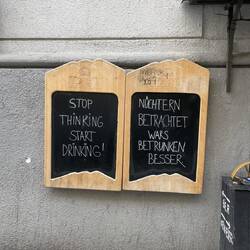 STOP
THINKING
START
DRINKING!
NÜCHTERN
BETRACHTET
WARS
BETRUNKEN
BESSER